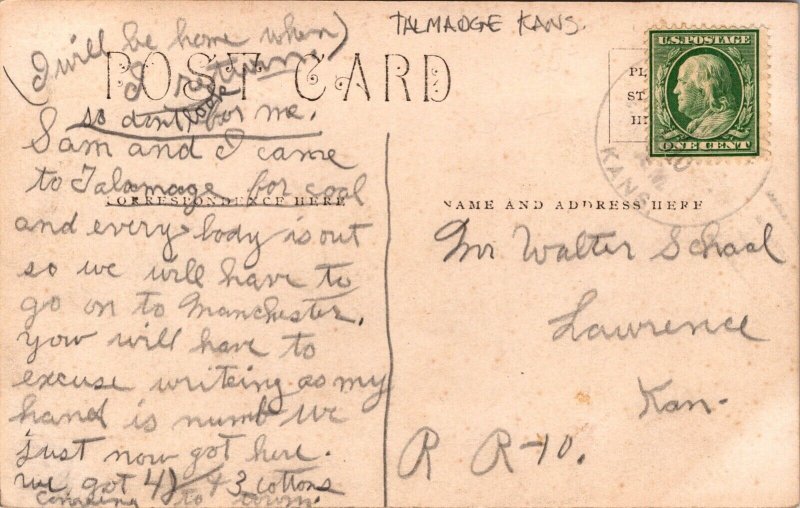 TALMADGE KANS.
(I will be home when)
I return
so dont look for me.
POST CARD
Sam and I came
to Talamage for coal
CORRESPONDENCE HERE
and every body is out
so we will have to
go on to Manchester.
you will have to
excuse writeing as my
hand is numb we
just now got here.
we got 42 + 3 cottons
to town.
U.S. POSTAGE
ONE CENT
PL
ST
HE
KANS.
NAME AND ADDRESS HERE
Mr Walter Schaal
Lawrence
Kan-
R R-10.